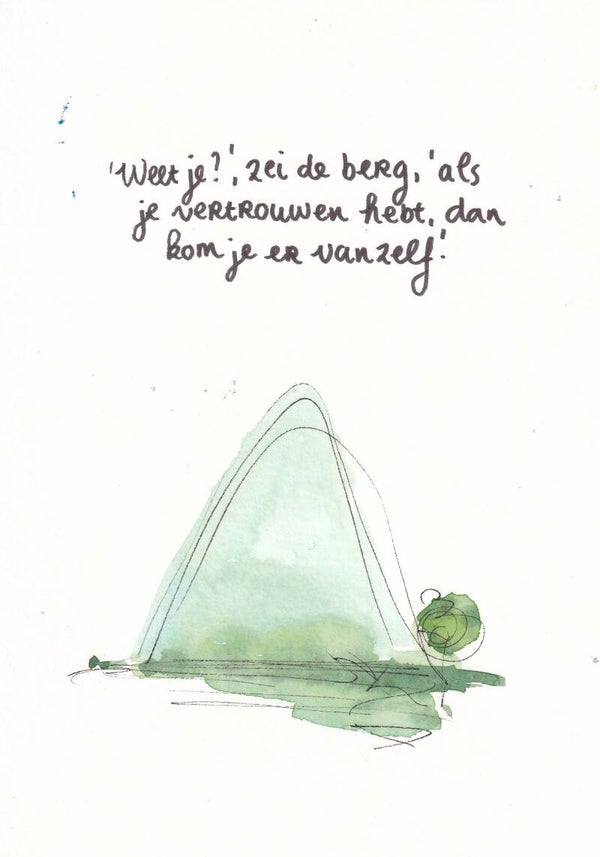 'Weet je?', zei de berg, 'als
je vertrouwen hebt, dan
kom je er vanzelf.'